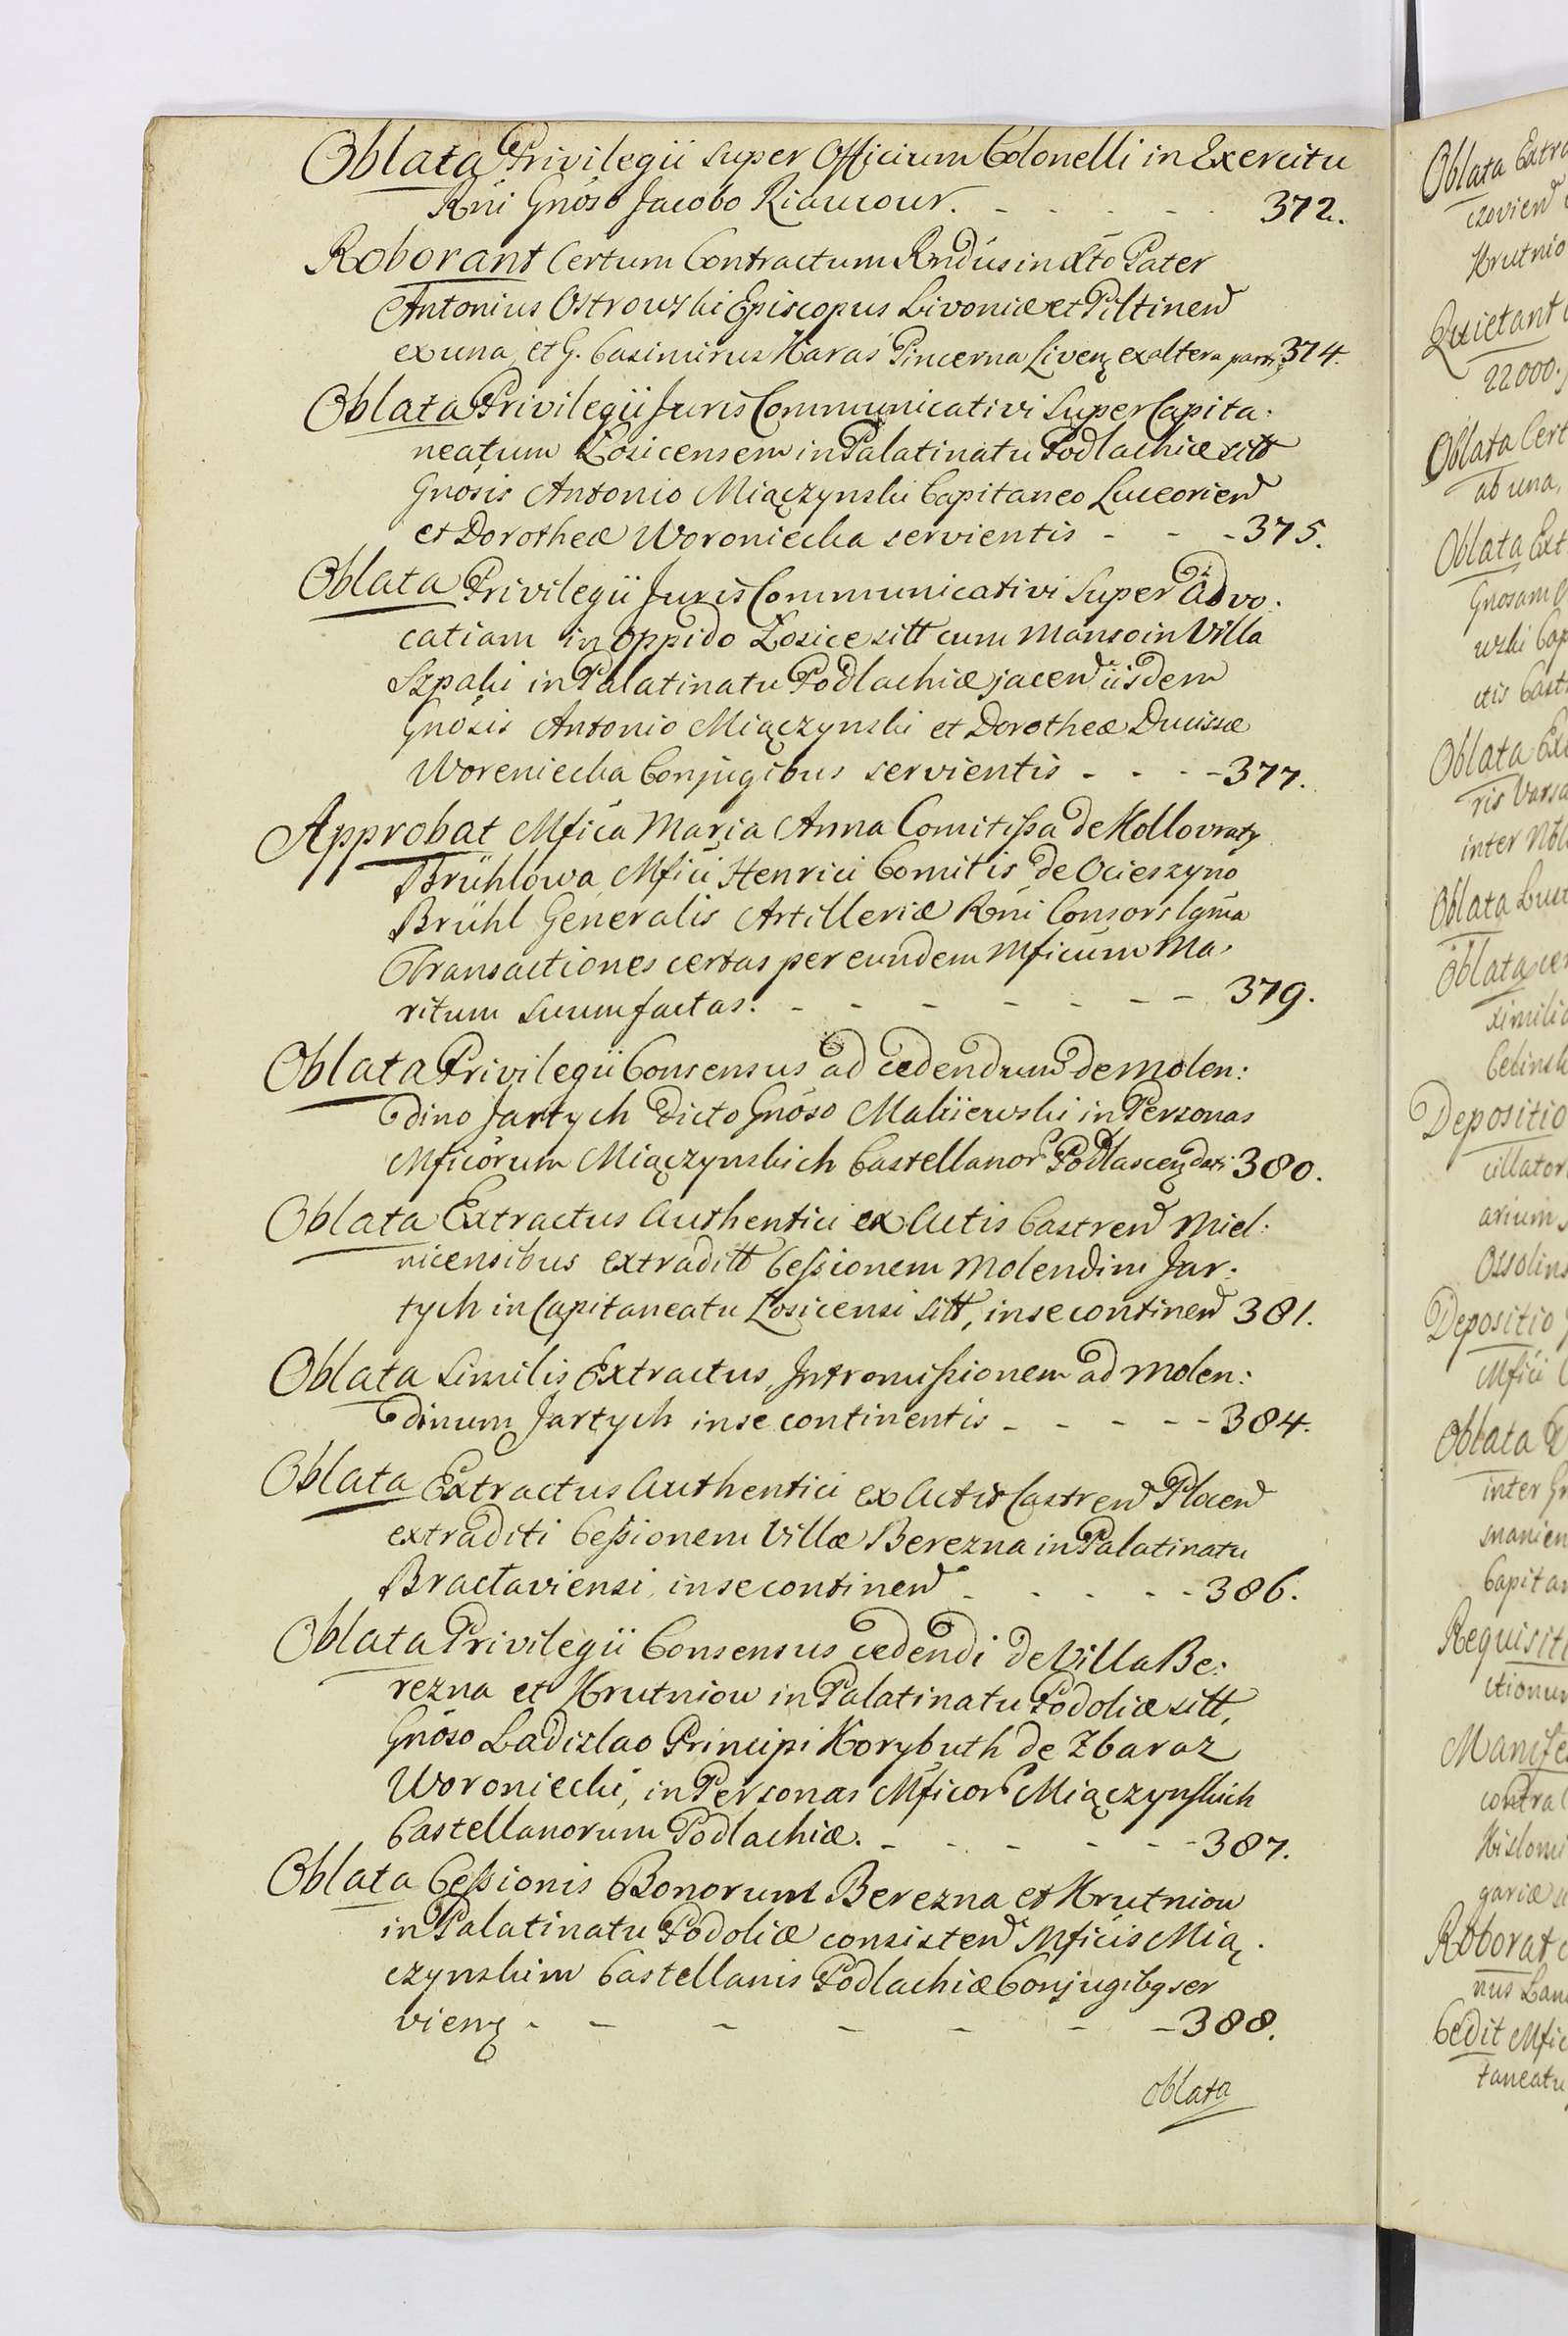 Oblata Privilegii super Officium Colonelli in Exercitu
Rñi Gnöso Jacobo Riaucour. - - - - - 372.
Roborant Certum Contractum Rndús in Xto Pater
Antonius Ostrowski Episcopus Livoniæ et Piltinen
ex una, et G. Casimirus Karaś Pincerna Livenȝ ex altera parte 374.
Oblata Privilegii Juris Communicativi Super Capita:
neatum Łosicensem in Palatinatu Podlachiæ sitt
Gnosis Antonio Miączynski Capitaneo Luceorien
et Dorotheæ Woroniecka servientis - - - 375.
Oblata Privilegii Juris Communicativi Super Advo:
catiam in oppido Łosice sitt cum Manso in Villa
Szpaki in Palatinatu Podlachiæ jacen iisdem
Gnösis Antonio Miączynski et Dorotheæ Ducissæ
Woreniecka Conjugibus servientis - - - - 377.
Approbat Mfica Maria Anna Comitissa de Kollovraty
Brühlowa Mfici Henrici Comitis de Ocieszyno
Brühl Generalis Artilleriæ Rñi Consors lgma
Transactiones certas per eundem Mficum Ma:
ritum Suum factas. - - - - - - - 379.
Oblata Privilegii Consensus ad cedendum de Molen:
dino Jartych dicto Gnöso Makiiewski in Personas
Mficorum Miączynskich Castellanor Podlascenȝ dati 380.
Oblata Extractus Authentici ex Actis Castren Miel:
nicensibus extraditt Cessionem Molendini Jar:
tych in Capitaneatu Łosicensi sitt, in se continen 381.
Oblata Similis Extractus, Intromissionem ad Molen:
dinum Jartych in se continentis - - - - - 384.
Oblata Extractus Authentici ex Actis Castren Plocen
extraditi Cessionem Villæ Berezna in Palatinatu
Bractaviensi in se continen - - - - - 386.
Oblata Privilegii Consensus cedendi de Villa Be:
rezna et Krutniow in Palatinatu Podoliæ sitt,
Gnöso Ladislao Principi Korybuth de Zbaraz
Woroniecki, in Personas Mficor Miączynskich
Castellanorum Podlachiæ. - - - - - - 387.
Oblata Cessionis Bonorum Berezna et Krutniow
in Palatinatu Podoliæ consisten Mficis Mią:
czynskim Castellanis Podlachiæ Conjugibq ser
vienȝ - - - - - - 388.
Oblata
Oblata Extra
czovien
Krutnio
Quietant
22000.
Oblata Cert
ab una,
Oblata Ext
Gnosam
wski Cap
ctis Cast
Oblata Ex
ris Varsa
inter Nob
Oblata Lust
Oblata cer
similis
Celinsk
Depositio
cillator
arium
Ossolins
Depositio
Mfici
Oblata
inter Gn
snanien
Capitan
Requisiti
ctionum
Manife
contra
Kislowi
gariæ s
Roborat c
nus Lan
Cedit Mfic
taneatu